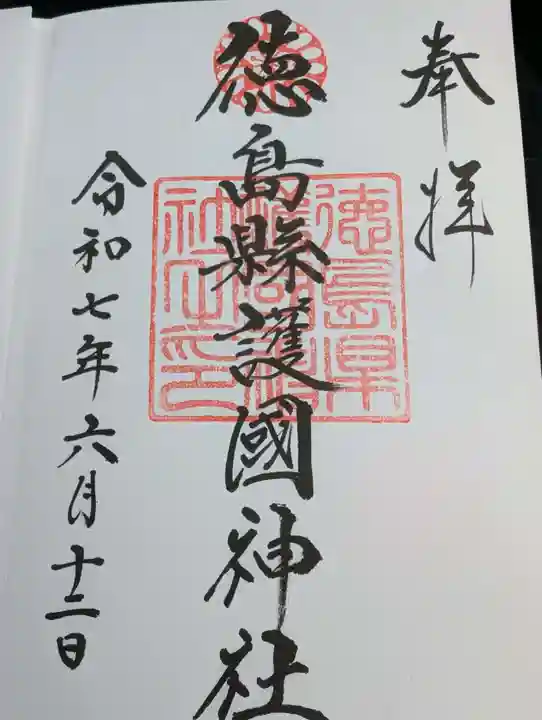 奉拝
徳島縣護國神社
徳島県護國神社之印
令和七年六月十二日